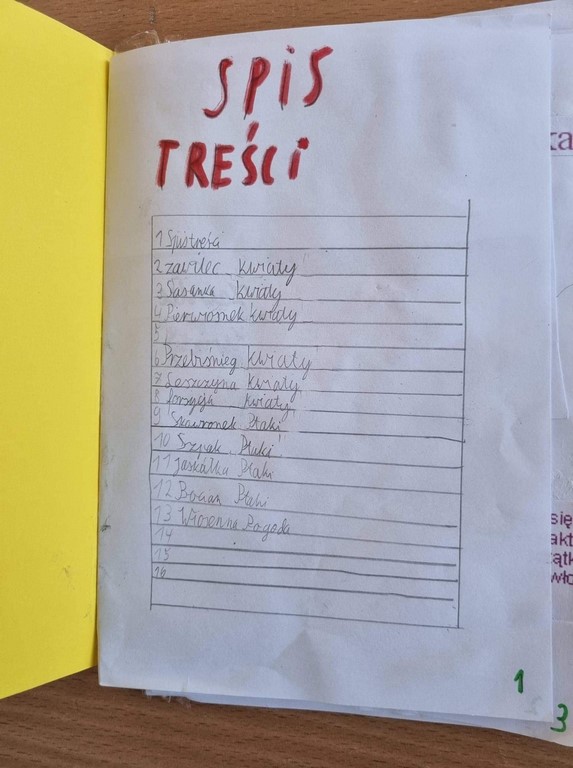 SPiS
TREŚCi
1 Spis treści
2 zawilec kwiaty
3 Sasanka kwiaty
4 Pierwiosnek kwiaty
5
6 Przebiśnieg kwiaty
7 Leszczyna kwiaty
8 forsycja kwiaty
9 Skowronek Ptaki
10 Szpak Ptaki
11 Jaskółka Ptaki
12 Bocian Ptaki
13 Wiosenna Pogoda
14
15
16
1
ka
się
akt
wło
3